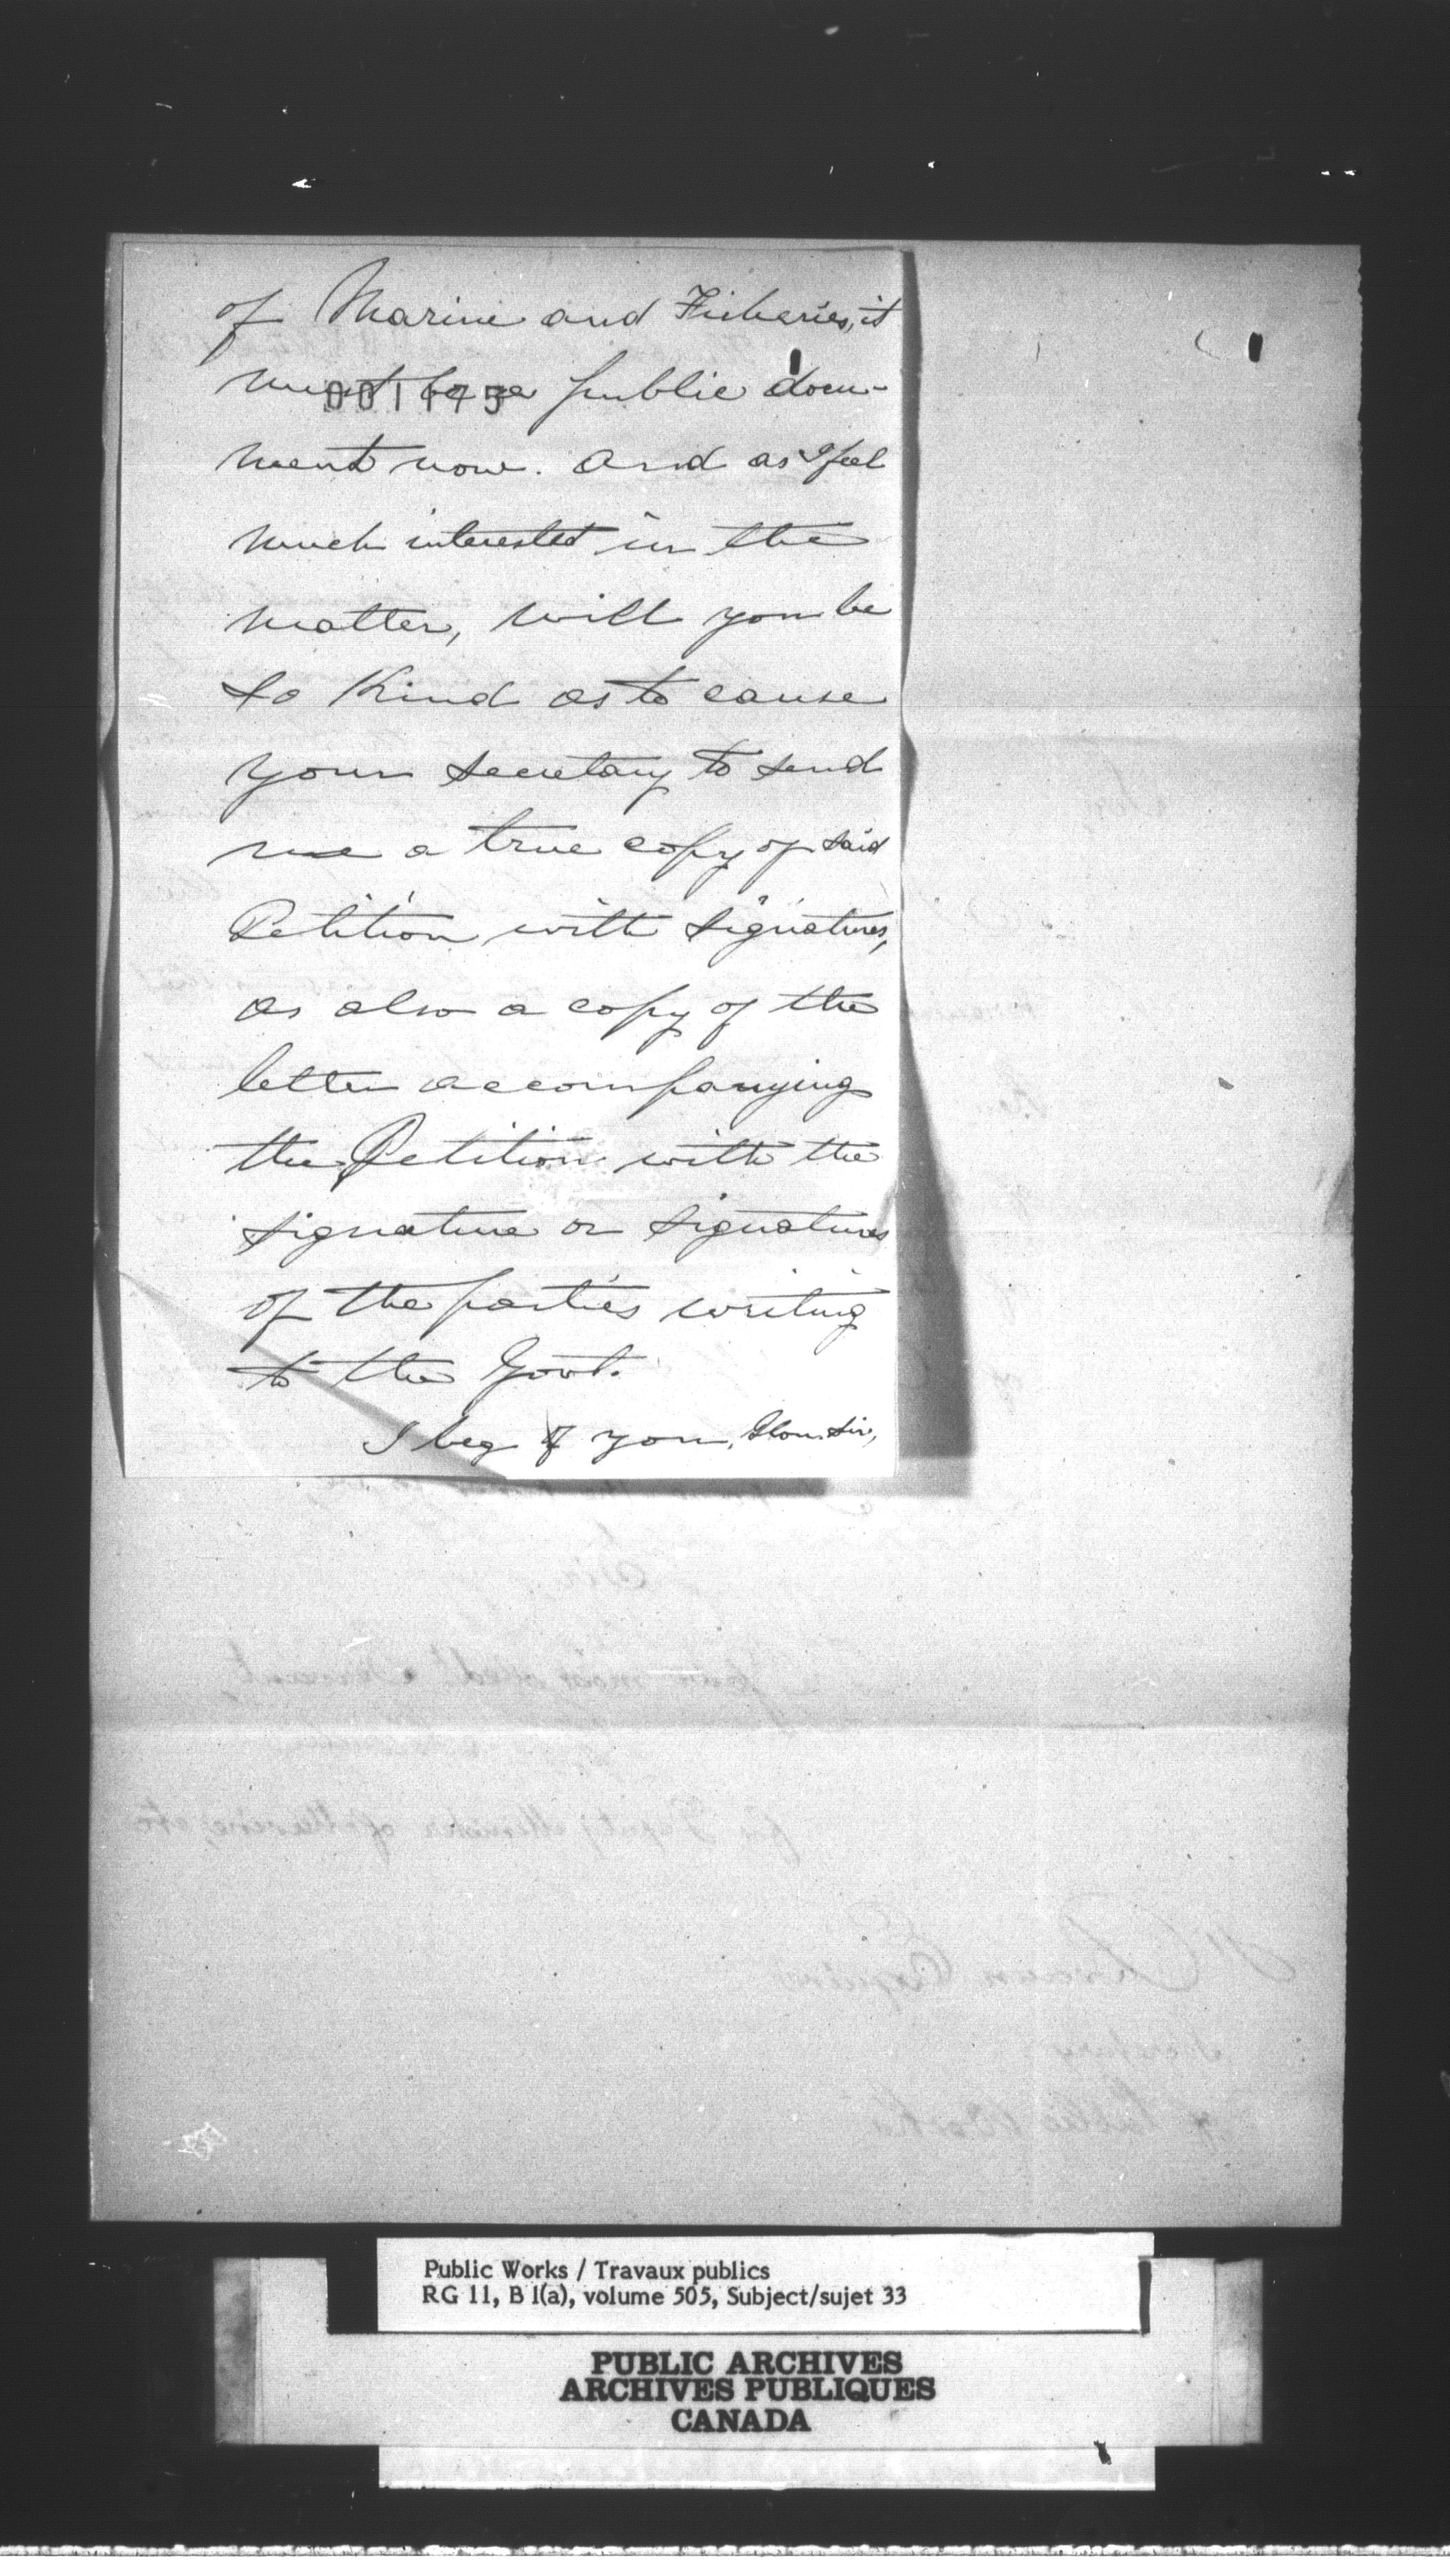 of Marine and Fisheries, it
must be a public docu-
001173
ment now. And as I feel
much interested in the
matter, will you be
so Kind as to cause
your Secretary to send
me a true copy of said
Petition with signatures,
as also a copy of the
letter accompanying
the Petition with the
signature or signatures
of the parties writing
to the Govt.
I beg of you, Hon. Sir,
Public Works / Travaux publics
RG 11, B 1(a), volume 505, Subject/sujet 33
PUBLIC ARCHIVES
ARCHIVES PUBLIQUES
CANADA